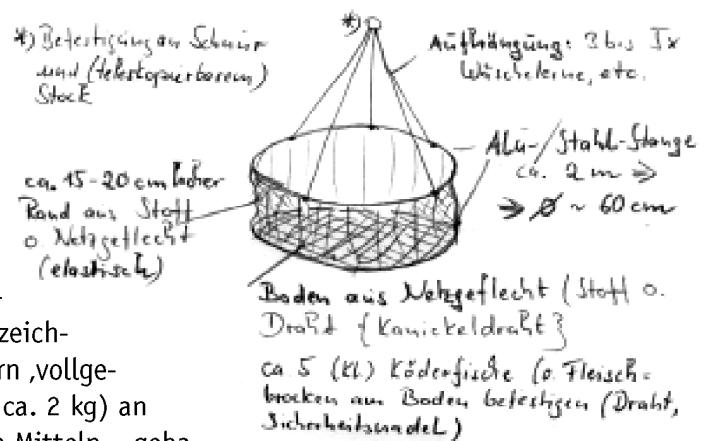 *) Befestigung an Schnur
und (teleskopierbarem)
Stock
*)
Aufhängung: 3 bis 5x
Wäscheleine, etc.
Alu-/Stahl-Stange
ca. 2 m ⇒
⇒ ø ~ 60 cm
ca. 15-20 cm hoher
Rand aus Stoff
o. Netzgeflecht
(elastisch)
Boden aus Netzgeflecht (Stoff o.
Draht {Kanickeldraht}
ca. 5 (kl.) Köderfische (o. Fleisch-
brocken am Boden befestigen (Draht,
Sicherheitsnadel)
zeich-
rn ‚vollge-
ca. 2 kg) an
Mitteln